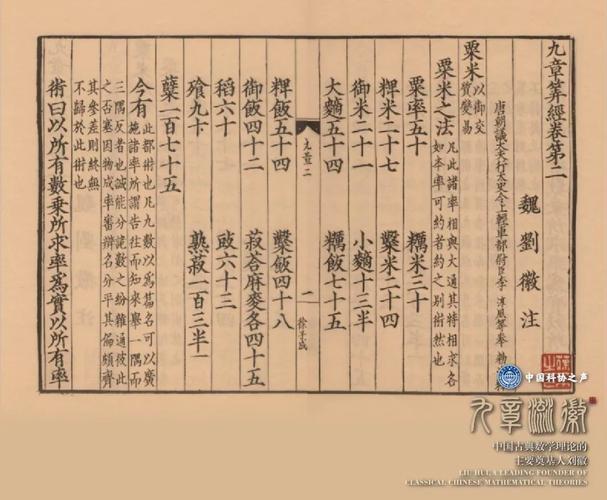 九章筭經卷第二
魏劉徽注
唐朝議大夫行太史令上輕車都尉臣李淳風等奉
粟米以御交質變易
粟米之法凡此諸率相與大通其特相求各如本率可約者約之別術然也
粟率五十 糲米三十
粺米二十七 糳米二十四
御米二十一 小䵂十三半
大䵂五十四 糲飯七十五
九章二 一
粺飯五十四 糳飯四十八
御飯四十二 菽荅麻麥各四十五
稻六十 豉六十三
飱九十 熟菽一百三半
糵一百七十五
今有此都術也凡九數以為篇名可以廣施諸率所謂告往而知來舉一隅而
三隅反者也誠能分詭數之紛雜通彼此之否塞因物成率審辨名分平其偏頗齊
其參差則終無不歸於此術也
術曰以所有數乘所求率為實以所有率
中国科协之声
九章流徽
中国古典数学理论的
主要奠基人刘徽
LIU HUI,A LEADING FOUNDER OF
CLASSICAL CHINESE MATHEMATICAL THEORIES